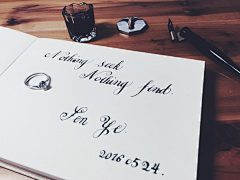 Nothing seek
Nothing find.
Sen Ye.
2016 05 24.